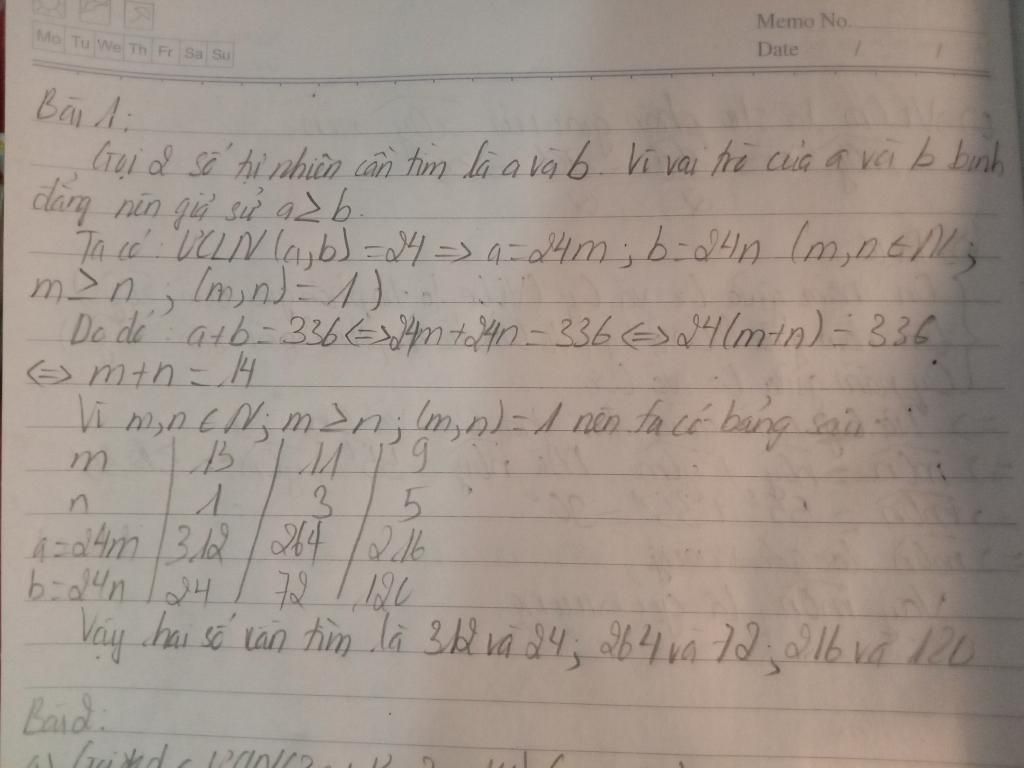 Memo No.
Date / /
Mo Tu We Th Fr Sa Su
Bài 1:
Gọi 2 số tự nhiên cần tìm là a và b. Vì vai trò của a và b bình
đẳng nên giả sử a ≥ b.
Ta có: ƯCLN (a,b) = 24 => a = 24m ; b = 24n (m,n ∈ N ;
m ≥ n ; (m,n) = 1)
Do đó: a+b = 336 <=> 24m + 24n = 336 <=> 24(m+n) = 336
<=> m+n = 14
Vì m,n ∈ N; m ≥ n ; (m,n) = 1 nên ta có bảng sau:
m | 13 | 11 | 9
n | 1 | 3 | 5
a=24m | 312 | 264 | 216
b=24n | 24 | 72 | 120
Vậy hai số cần tìm là 312 và 24; 264 và 72; 216 và 120
Bài 2:
a) Gọi d